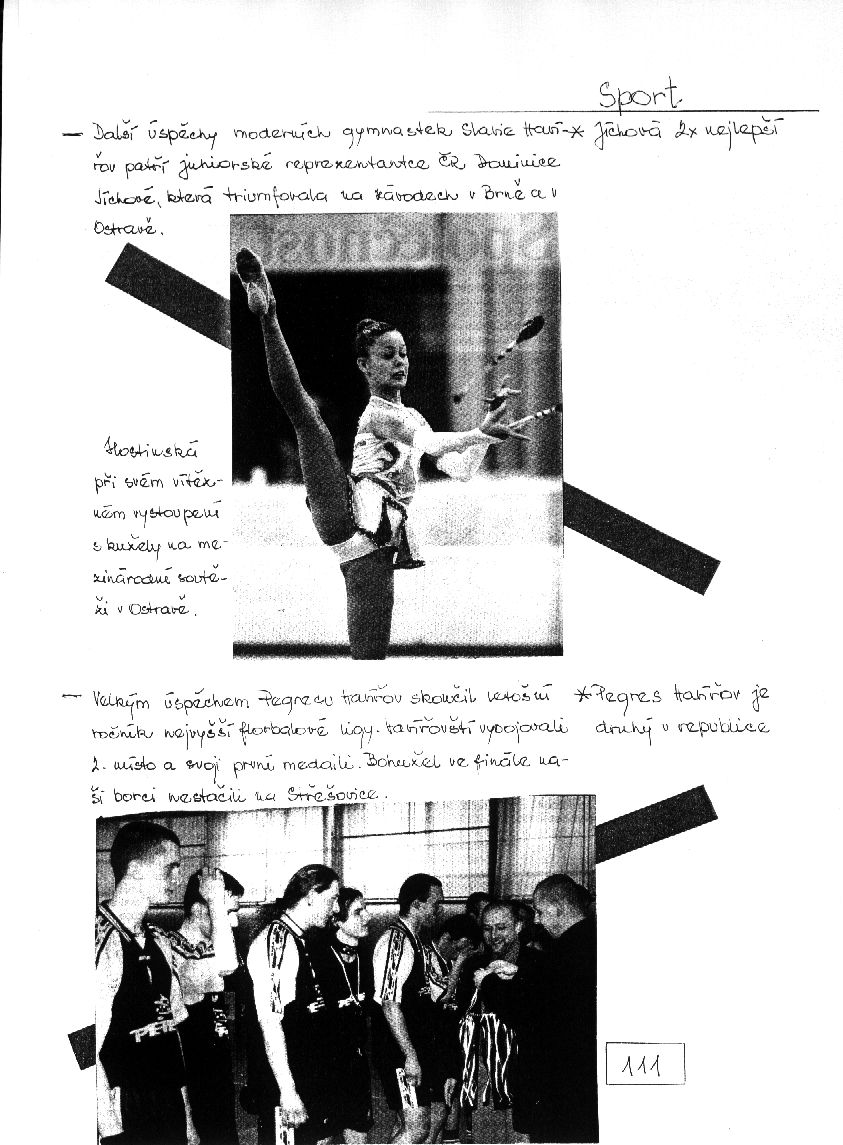 Sport
— Další úspěchy moderních gymnastek Slavie Haví-
řov patří juniorské reprezentantce ČR Dominice
Jíchové, která triumfovala na závodech v Brně a v
Ostravě.
* Jíchová 2x nejlepší
Společnost
Hostinská
při svém vítěz-
ném vystoupení
s kužely na me-
zinárodní soutě-
ži v Ostravě.
— Velkým úspěchem Pegresu Havířov skončil letošní
ročník nejvyšší florbalové ligy. Havířovští vybojovali
2. místo a svoji první medaili. Bohužel ve finále na-
ši borci nestačili na Střešovice.
* Pegres Havířov je
druhý v republice
111